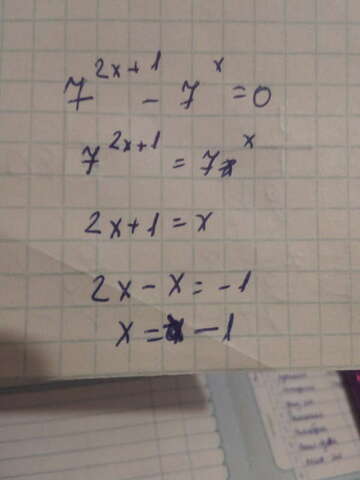 7^{2x+1} - 7^x = 0
7^{2x+1} = 7^x
2x+1 = x
2x - x = -1
x = -1